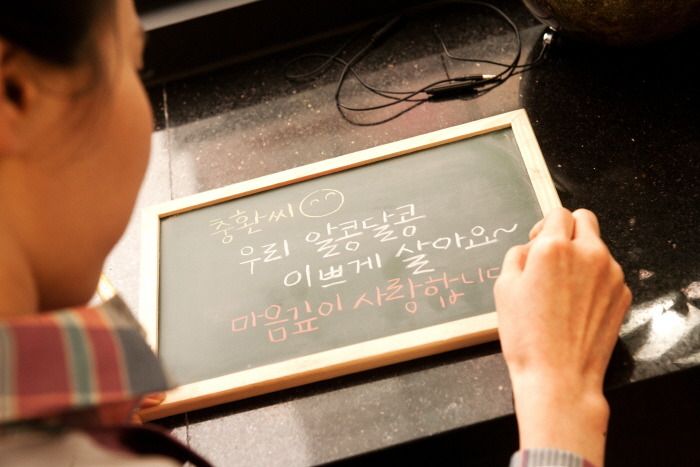 충환씨
우리 알콩달콩
이쁘게 살아요~
마음깊이 사랑합니다